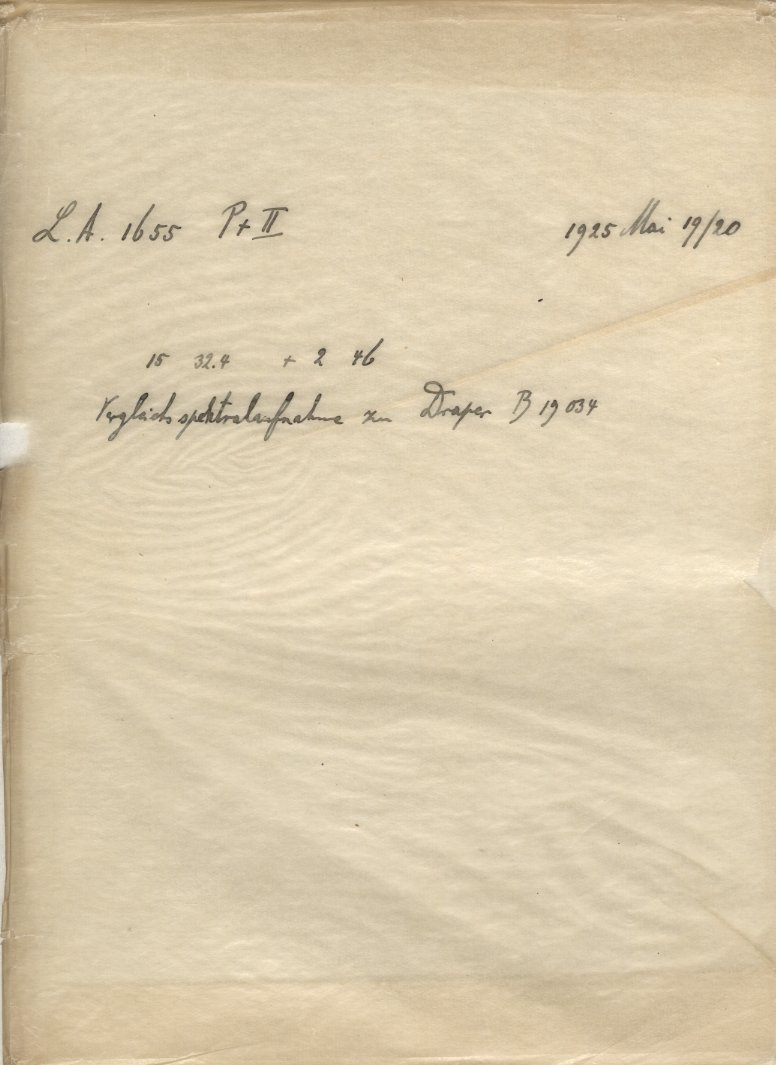 L.A. 1655 P+II 1925 Mai 19/20
15 32.4 + 2 46
Vergleichsspektralaufnahme zu Draper B 19034